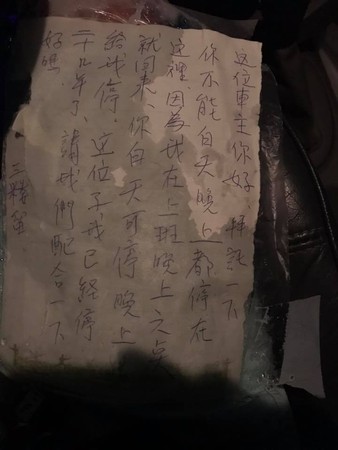 這位車主你好 拜託一下
你不能白天晚上都停在
這裡、因為我在上班晚上六點
就回來、你白天可停晚上
給我停。這位子我已經停
二十几年了、請我們配合一下
好嗎
三樓留